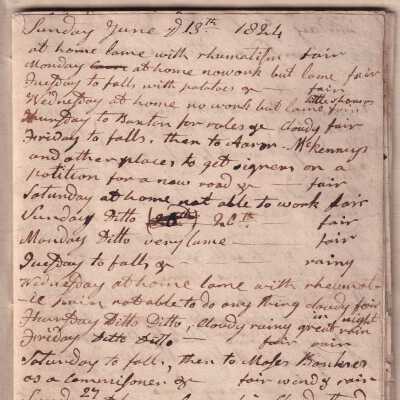 Sunday June ye 13th 1824
at home lame with rheumatism fair
Monday at home no work but lame fair
Tuesday to falls with potatoes & — fair
Wednesday at home no work but lame fair
little shower
Thursday to Banton for rales & cloudy fair
Friday to falls, then to Aaron McKennys
and other places to get signers on a
petition for a new road & — fair
Saturday at home not able to work fair
Sunday Ditto 20th fair
Monday Ditto very lame — fair
Tuesday to falls & — rainy
Wednesday at home lame with rheumat-
ic pain not able to do any thing cloudy fair
in night
Thursday Ditto Ditto, cloudy rainy great rain
Friday Ditto Ditto — fair
Saturday to falls, then to Moses
as a commissoner & fair wind & rain
27